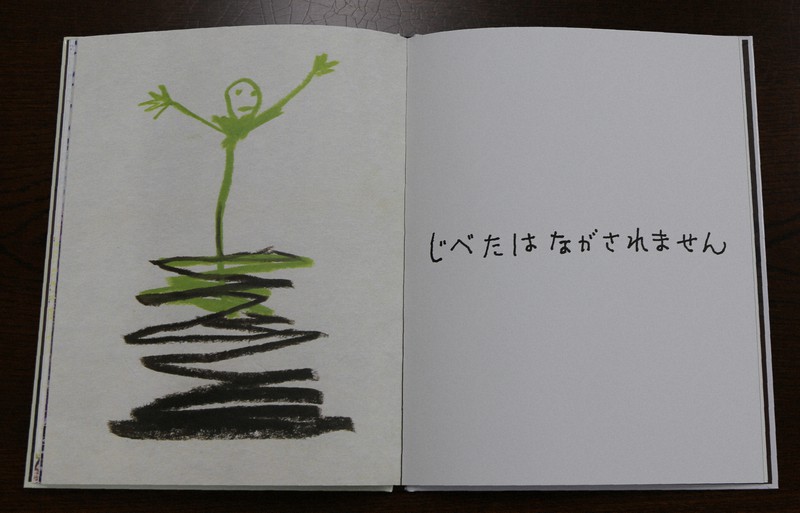 じべたは ながされません